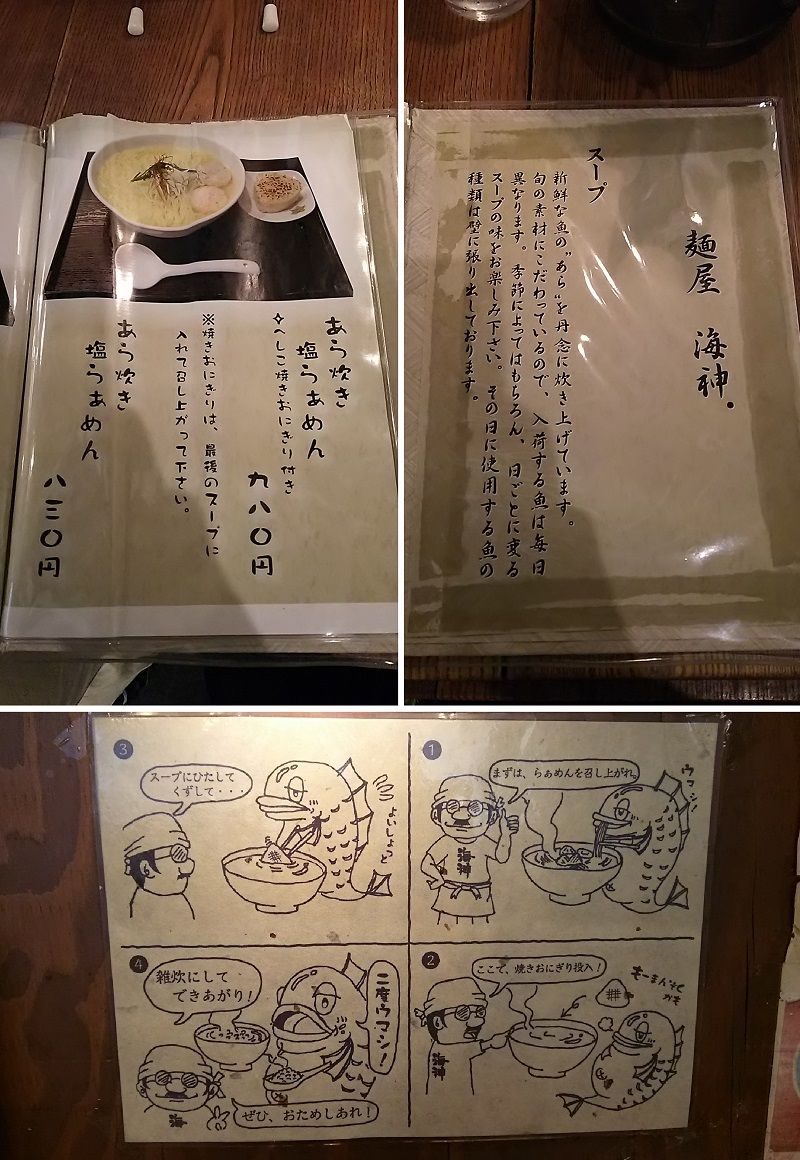 あら炊き
塩らぁめん
✧へしこ焼きおにぎり付き
九八〇円
※焼きおにぎりは、最後のスープに
入れて召し上がって下さい。
あら炊き
塩らぁめん
八三〇円
麺屋 海神.
スープ
新鮮な魚の“あら”を丹念に炊き上げています。
旬の素材にこだわっているので、入荷する魚は毎日
異なります。季節によってはもちろん、日ごとに変る
スープの味をお楽しみ下さい。その日に使用する魚の
種類は壁に張り出しております。
1
まずは、らぁめんを召し上がれ。
ウマシ!
海神
2
ここで、焼きおにぎり投入!
海神
3
スープにひたして
くずして・・・
よいしょっと
4
雑炊にして
できあがり!
二度ウマシ!
海
ぜひ、おためしあれ!